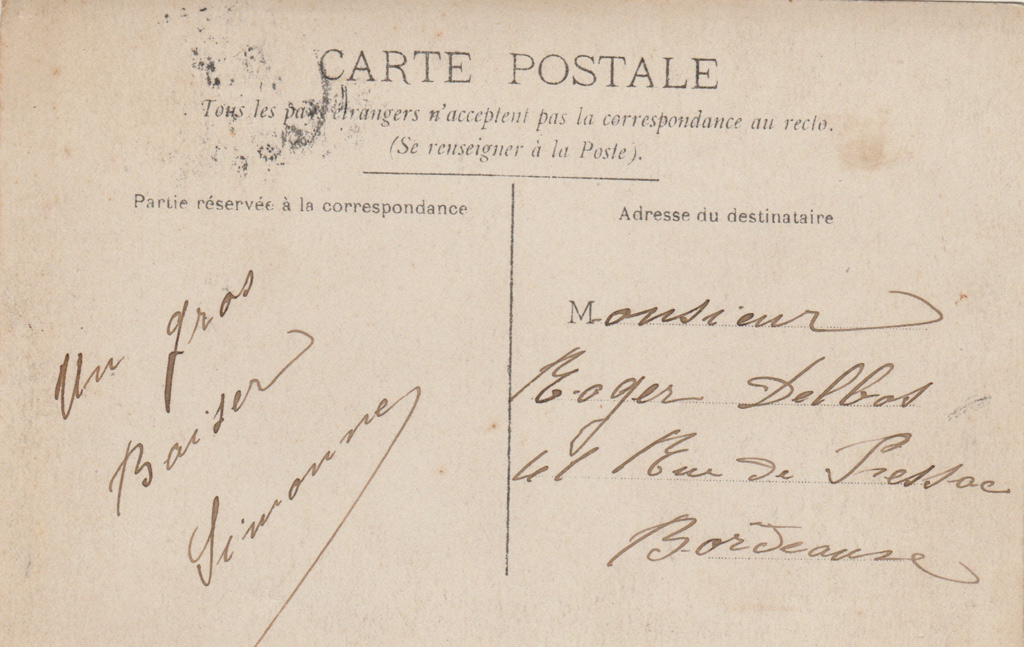 CARTE POSTALE
Tous les pays étrangers n'acceptent pas la correspondance au recto.
(Se renseigner à la Poste).
Partie réservée à la correspondance
Adresse du destinataire
Un gros
Baiser
Simonne
Monsieur
Roger Delbos
41 Rue de Pressac
Bordeaux